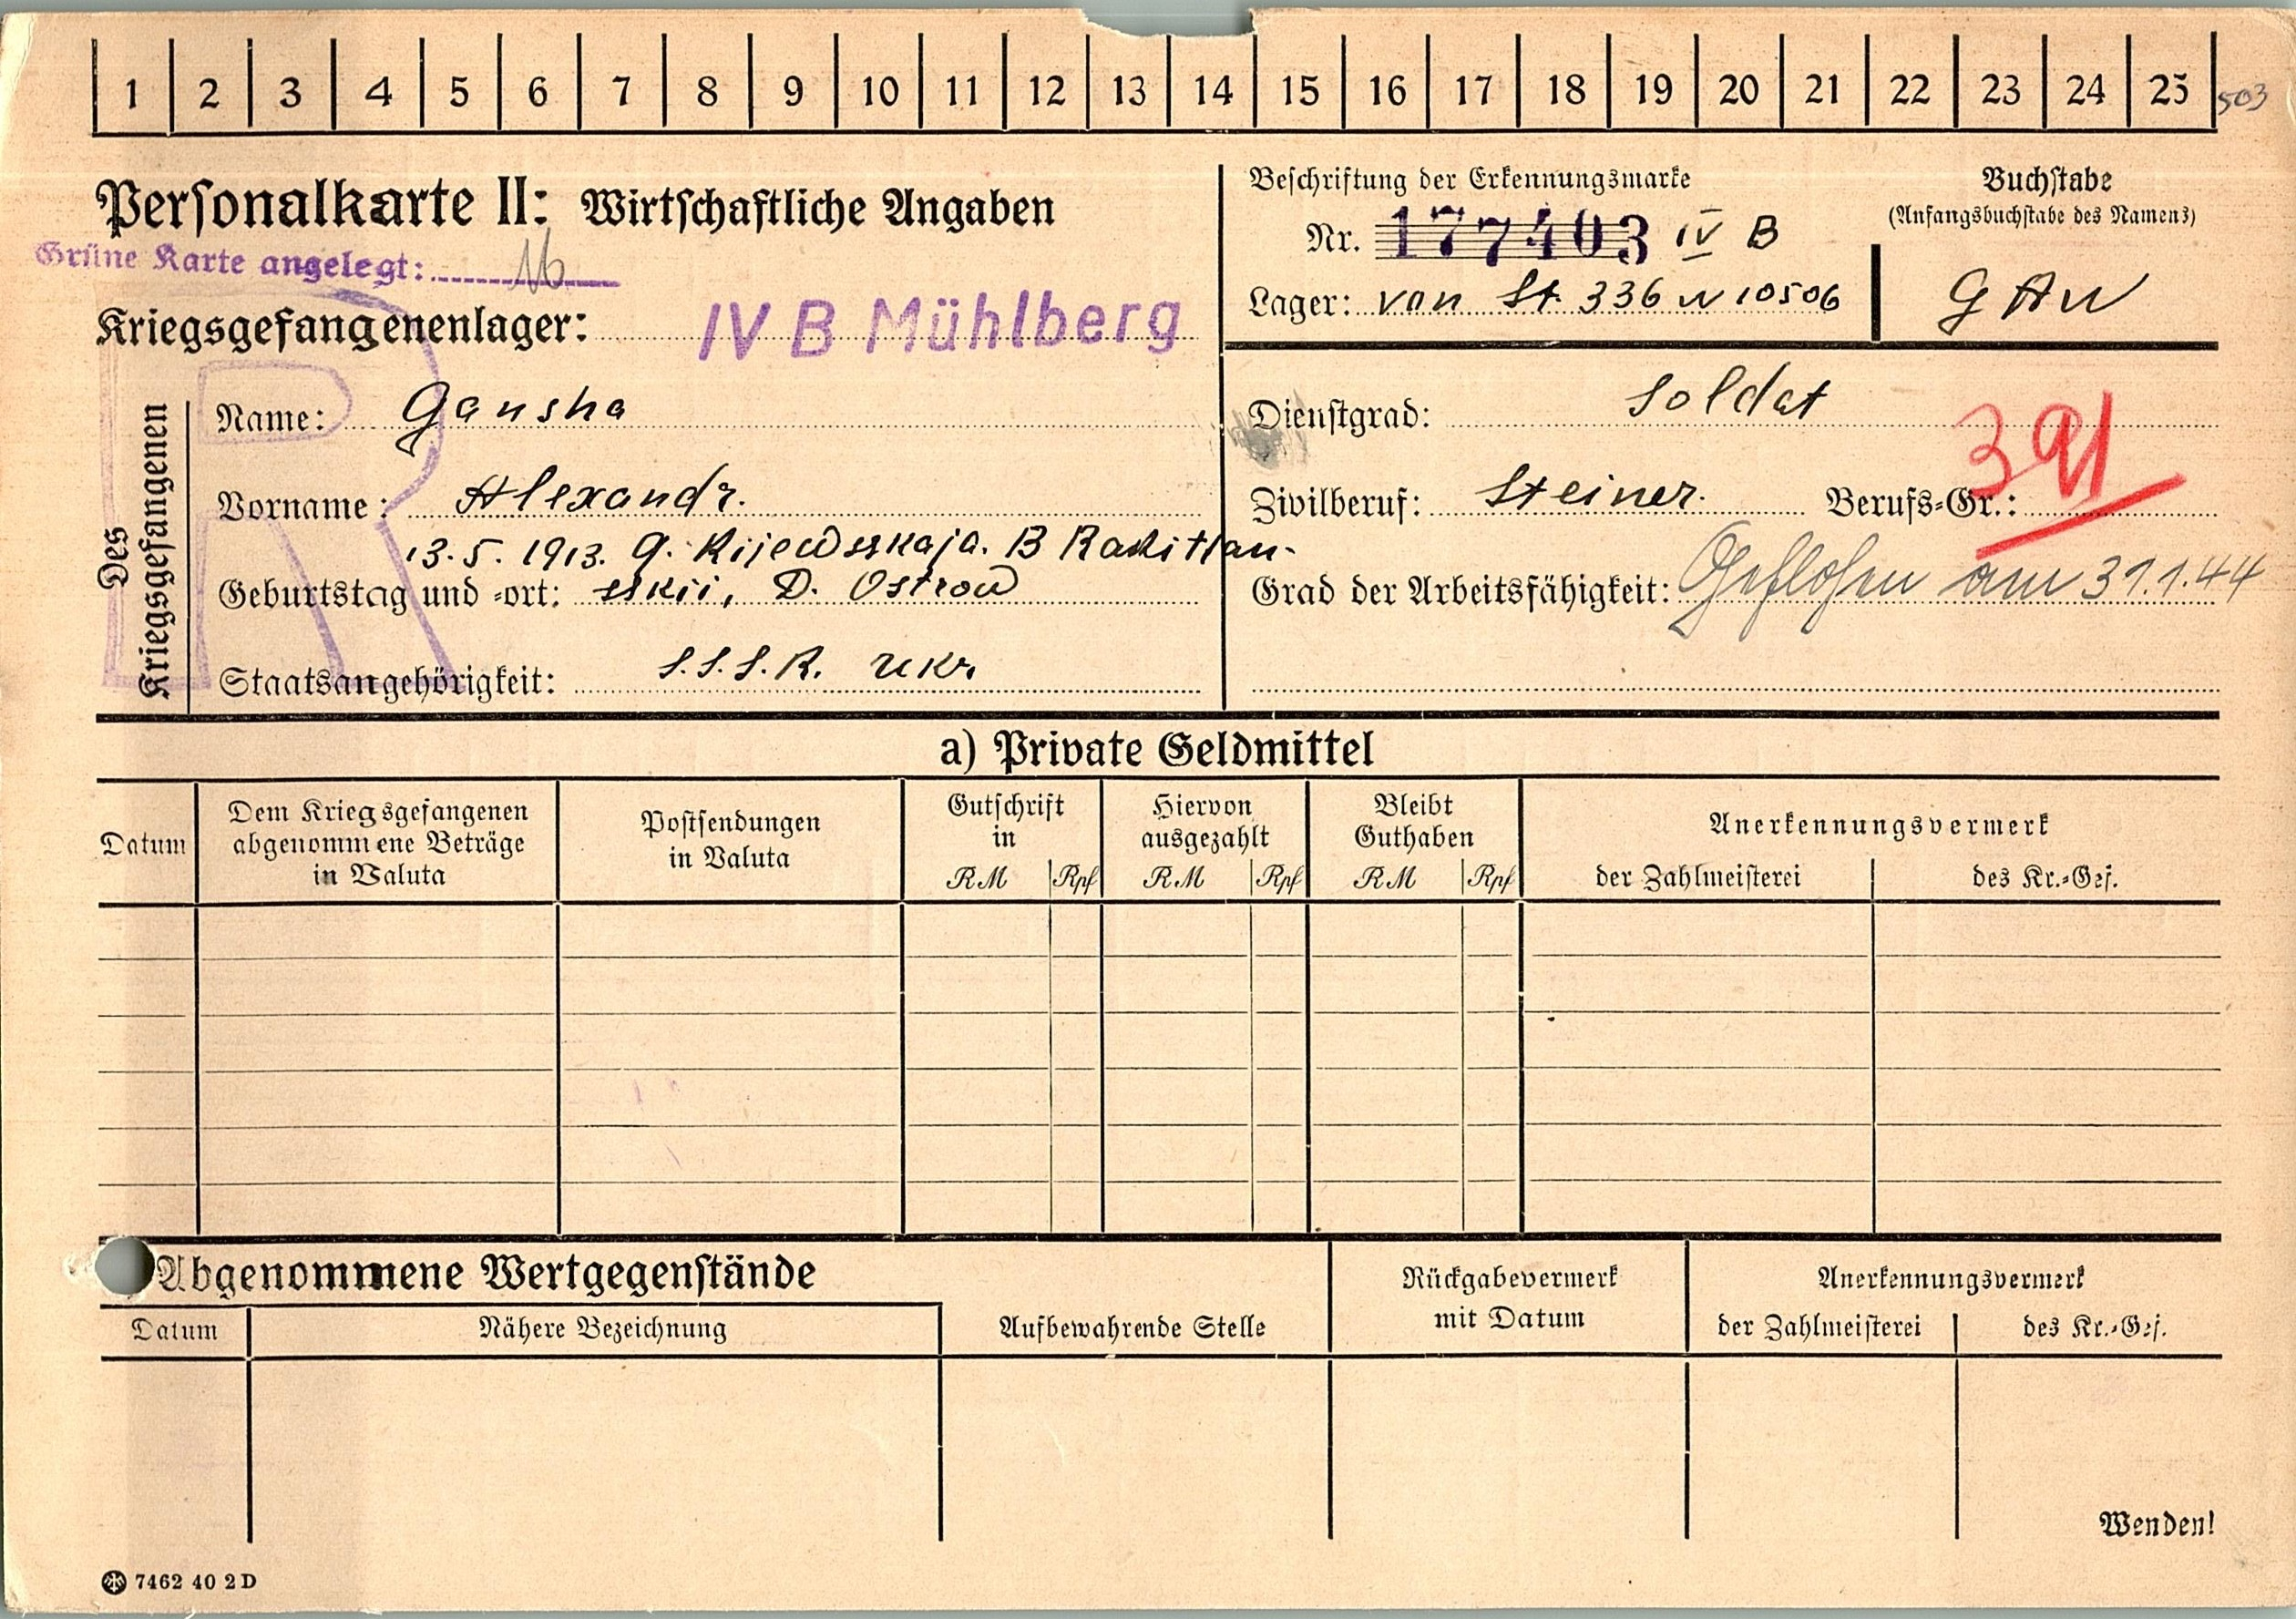 1 2 3 4 5 6 7 8 9 10 11 12 13 14 15 16 17 18 19 20 21 22 23 24 25 503
Personalkarte II: Wirtschaftliche Angaben
Grüne Karte angelegt:
Kriegsgefangenenlager: IV B Mühlberg
Beschriftung der Erkennungsmarke
Nr. 177403 IV B
Lager: von St. 336 N 10506
Buchstabe
(Anfangsbuchstabe des Namens)
GAN
Des
Kriegsgefangenen
Name: Gansha
Vorname: Alexandr.
13.5.1913. G. Kijewsskaja. B Rakitjan-
Geburtstag und -ort: sskii, D. Ostrow
Staatsangehörigkeit: S.S.S.R. Ukr.
Dienstgrad: Soldat
Zivilberuf: Steiner. Berufs-Gr.: 391
Grad der Arbeitsfähigkeit: Geflohen am 31.1.44
a) Private Geldmittel
Datum
Dem Kriegsgefangenen
abgenommene Beträge
in Valuta
Postsendungen
in Valuta
Gutschrift
in
RM Rpf
Hiervon
ausgezahlt
RM Rpf
Bleibt
Guthaben
RM Rpf
Anerkennungsvermerk
der Zahlmeisterei des Kr.-Gef.
Abgenommene Wertgegenstände
Datum Nähere Bezeichnung
Aufbewahrende Stelle
Rückgabevermerk
mit Datum
Anerkennungsvermerk
der Zahlmeisterei des Kr.-Gef.
Wenden!
7462 40 2D